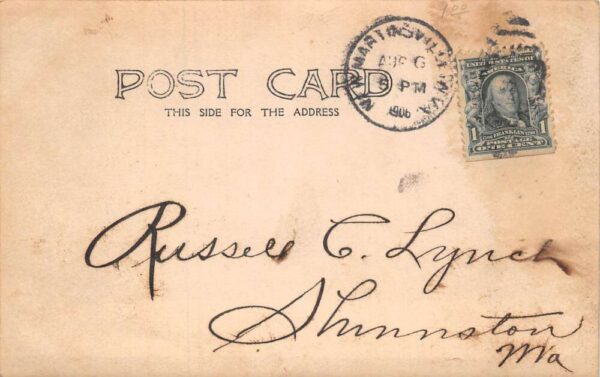 1.00
NEW MARTINSVILLE, W.VA.
AUG 6
PM
1906
UNITED STATES OF
AMERICA
1 FRANKLIN 1
POSTAGE
ONE CENT
POST CARD
THIS SIDE FOR THE ADDRESS
Russell C. Lynch
Shinnston
Wa